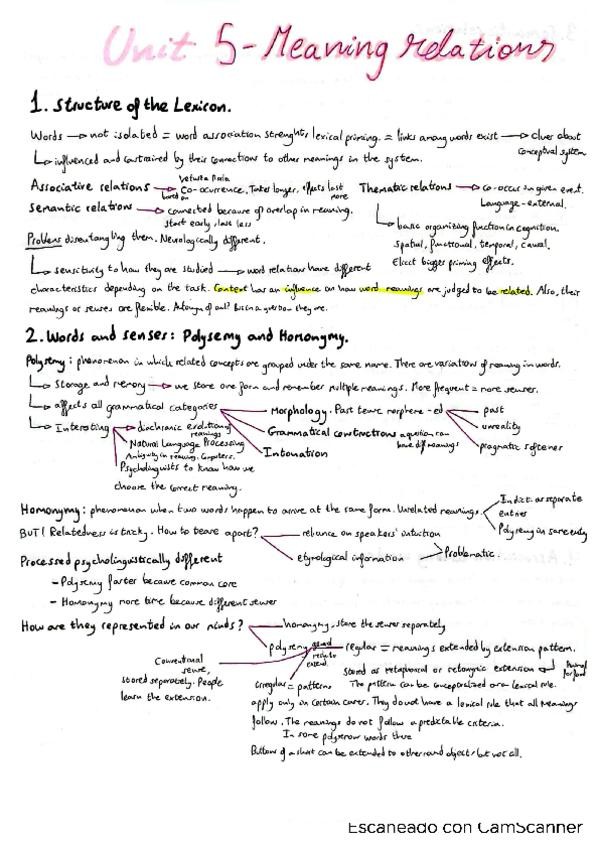 Unit 5 - Meaning relations
1. Structure of the Lexicon.
Words → not isolated = word association strenghts lexical priming. = links among words exist → clues about
conceptual system
influenced and constrained by their connections to other meanings in the system.
Associative relations → based on Co-ocurrence. Takes longer, effects last more
Thematic relations → co-occur in given event.
Language-external.
Semantic relations → connected because of overlap in meaning.
start early, last less
basic organizing function in cognition.
spatial, functional, temporal, causal.
Elicit bigger priming effects.
Problem disentangling them. Neurologically different.
sensitivity to how they are studied → word relations have different
characteristics depending on the task. Context has an influence on how word meanings are judged to be related. Also, their
meanings or senses are flexible.
2. Words and senses: Polysemy and Homonymy.
Polysemy: phenomenon in which related concepts are grouped under the same name. There are variations of meaning in words.
Storage and memory → we store one form and remember multiple meanings. More frequent = more senses.
affects all grammatical categories
Morphology. Past tense morpheme -ed
past
unreality
pragmatic softener
Grammatical constructions a question can have diff meanings
Intonation
Interesting
diachronic evolution of meanings
Natural Language Processing
Ambiguity in meaning. Computers.
Psycholinguists to know how we
choose the correct meaning.
Homonymy: phenomenon when two words happen to arrive at the same form. Unrelated meanings.
In dict. as separate
entries
Polysemy in same entry
BUT! Relatedness is tricky. How to tease apart?
reliance on speakers' intuition
etymological information
Problematic.
Processed psycholinguistically different
- Polysemy faster because common core
- Homonymy more time because different senses
How are they represented in our minds?
homonymy, store the senses separately
polysemy
regular = meanings extended by extension pattern.
stored as metaphorical or metonymic extension
The pattern can be conceptualized as a lexical rule.
Conventional
sense,
stored separately. People
learn the extension.
irregular = patterns
apply only in certain cases. They do not have a lexical rule that all meanings
follow. The meanings do not follow a predictable criteria.
In some polysemous words this
Buttons of a shirt can be extended to other round objects but not all.
Escaneado con CamScanner